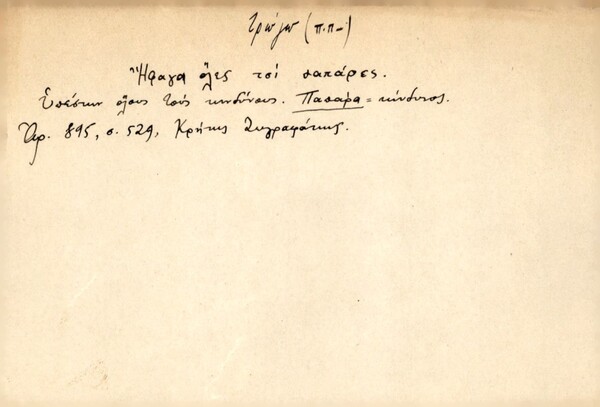 τρώγω (π.π-)
Ἤφαγα ὅλες τσὶ παπάρες.
Ὑπέστην ὅλους τοὺς κινδύνους. Παπάρα = κίνδυνος.
Ἀρ. 895, σ. 529, Κρήτης Ζωγραφάκης.